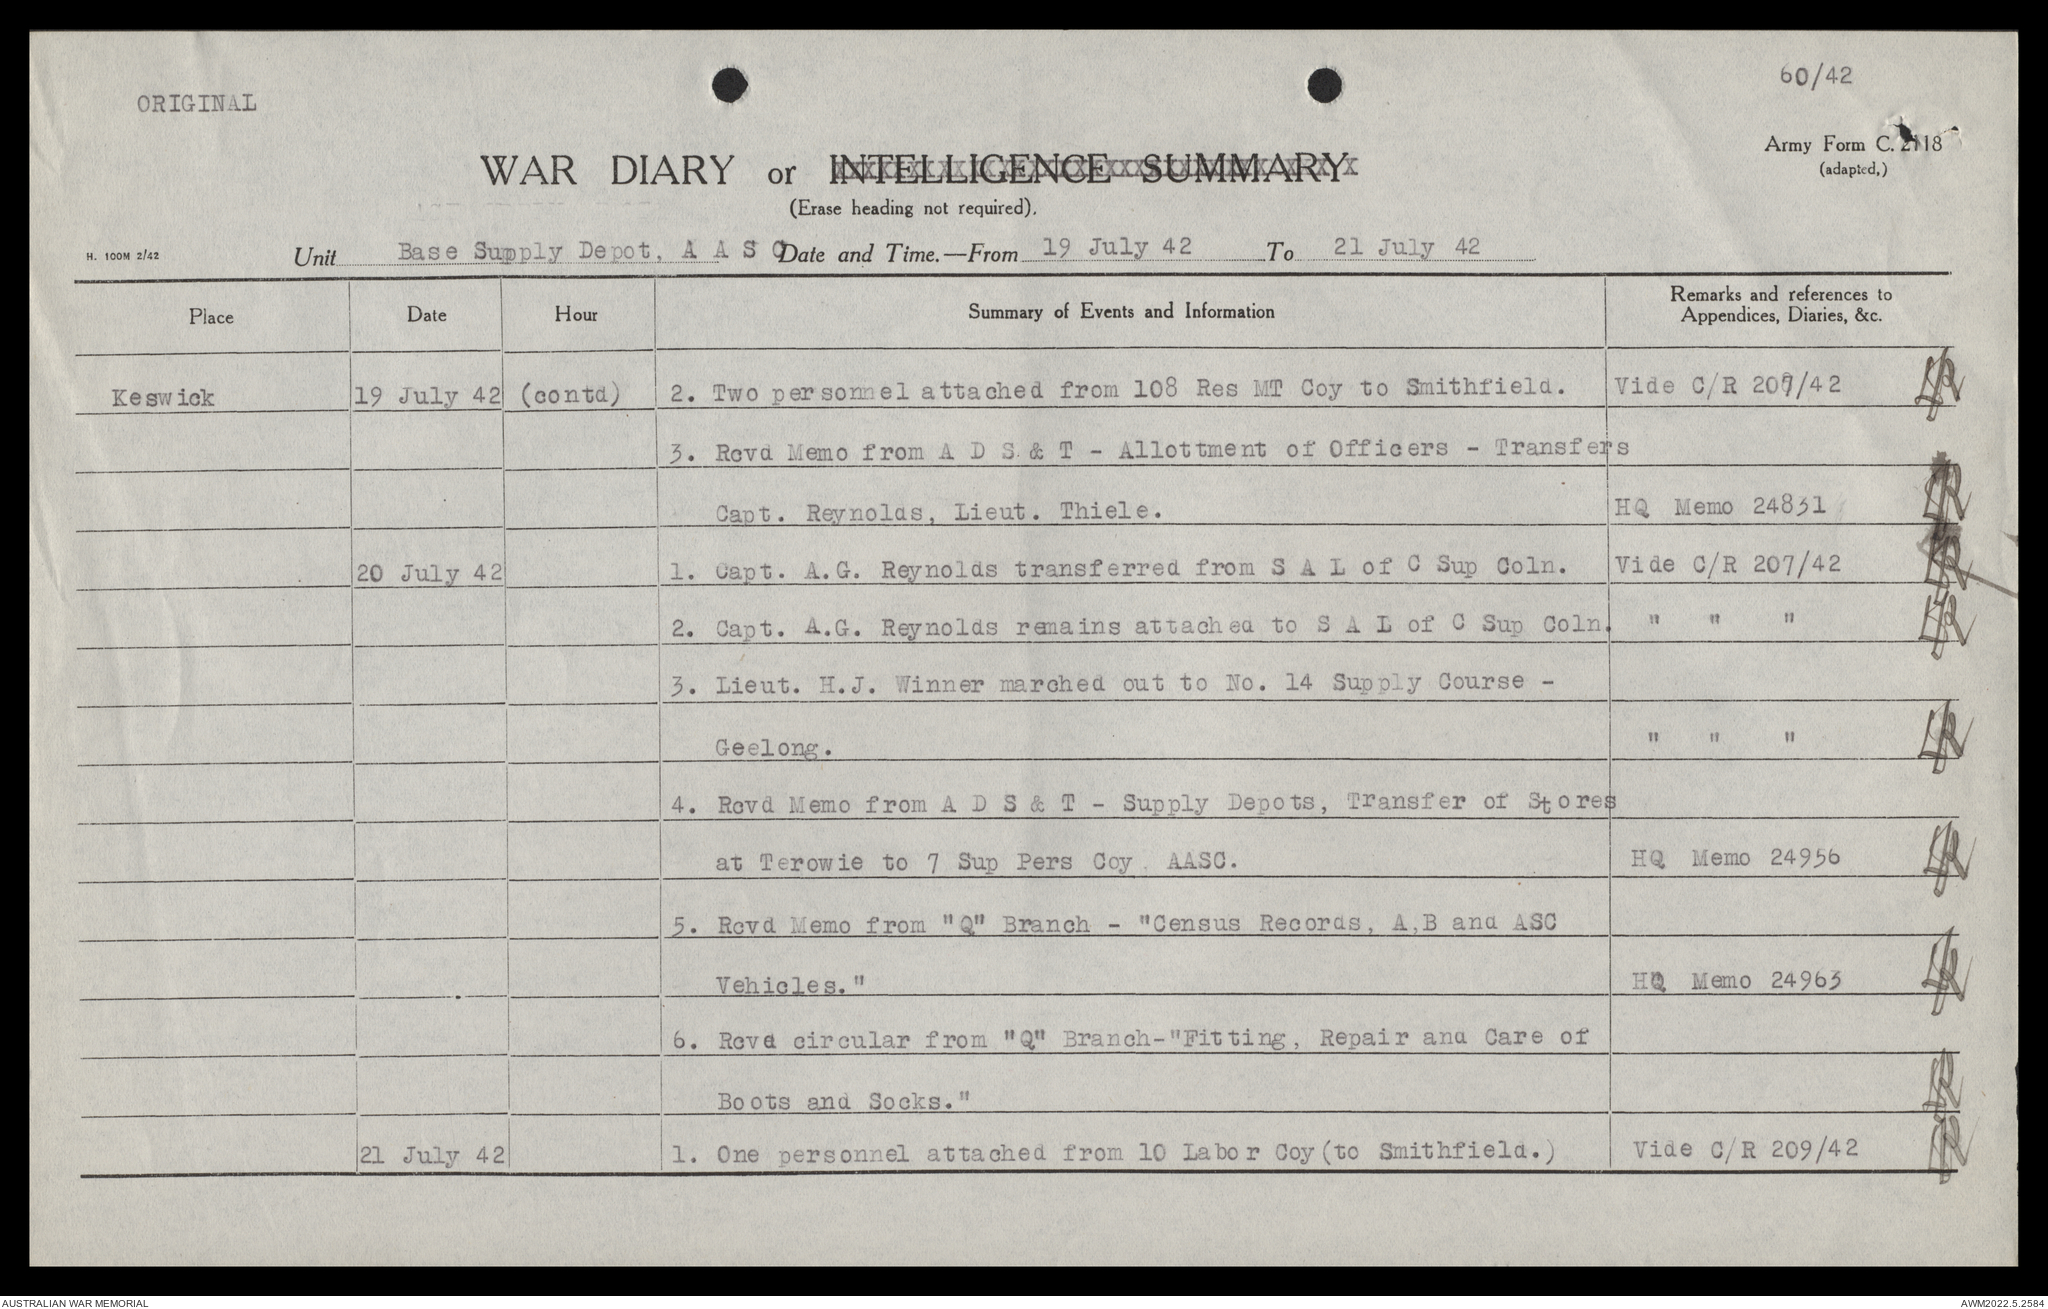 ORIGINAL
60/42
Army Form C. 2118
(adapted,)
WAR DIARY or INTELLIGENCE SUMMARY
(Erase heading not required).
H. 100M 2/42
Unit Base Supply Depot, A A S C Date and Time.—From 19 July 42 To 21 July 42
Place Date Hour Summary of Events and Information Remarks and references to
Appendices, Diaries, &c.
Keswick 19 July 42 (contd) 2. Two personnel attached from 108 Res MT Coy to Smithfield. Vide C/R 207/42
3. Rcvd Memo from A D S & T - Allottment of Officers - Transfers
Capt. Reynolds, Lieut. Thiele. HQ Memo 24831
20 July 42 1. Capt. A.G. Reynolds transferred from S A L of C Sup Coln. Vide C/R 207/42
2. Capt. A.G. Reynolds remains attached to S A L of C Sup Coln. " " "
3. Lieut. H.J. Winner marched out to No. 14 Supply Course -
Geelong. " " "
4. Rcvd Memo from A D S & T - Supply Depots, Transfer of Stores
at Terowie to 7 Sup Pers Coy AASC. HQ Memo 24956
5. Rcvd Memo from "Q" Branch - "Census Records, A,B and ASC
Vehicles." HQ Memo 24963
6. Rcvd circular from "Q" Branch-"Fitting, Repair and Care of
Boots and Socks."
21 July 42 1. One personnel attached from 10 Labor Coy (to Smithfield.) Vide C/R 209/42
AUSTRALIAN WAR MEMORIAL
AWM2022.5.2584